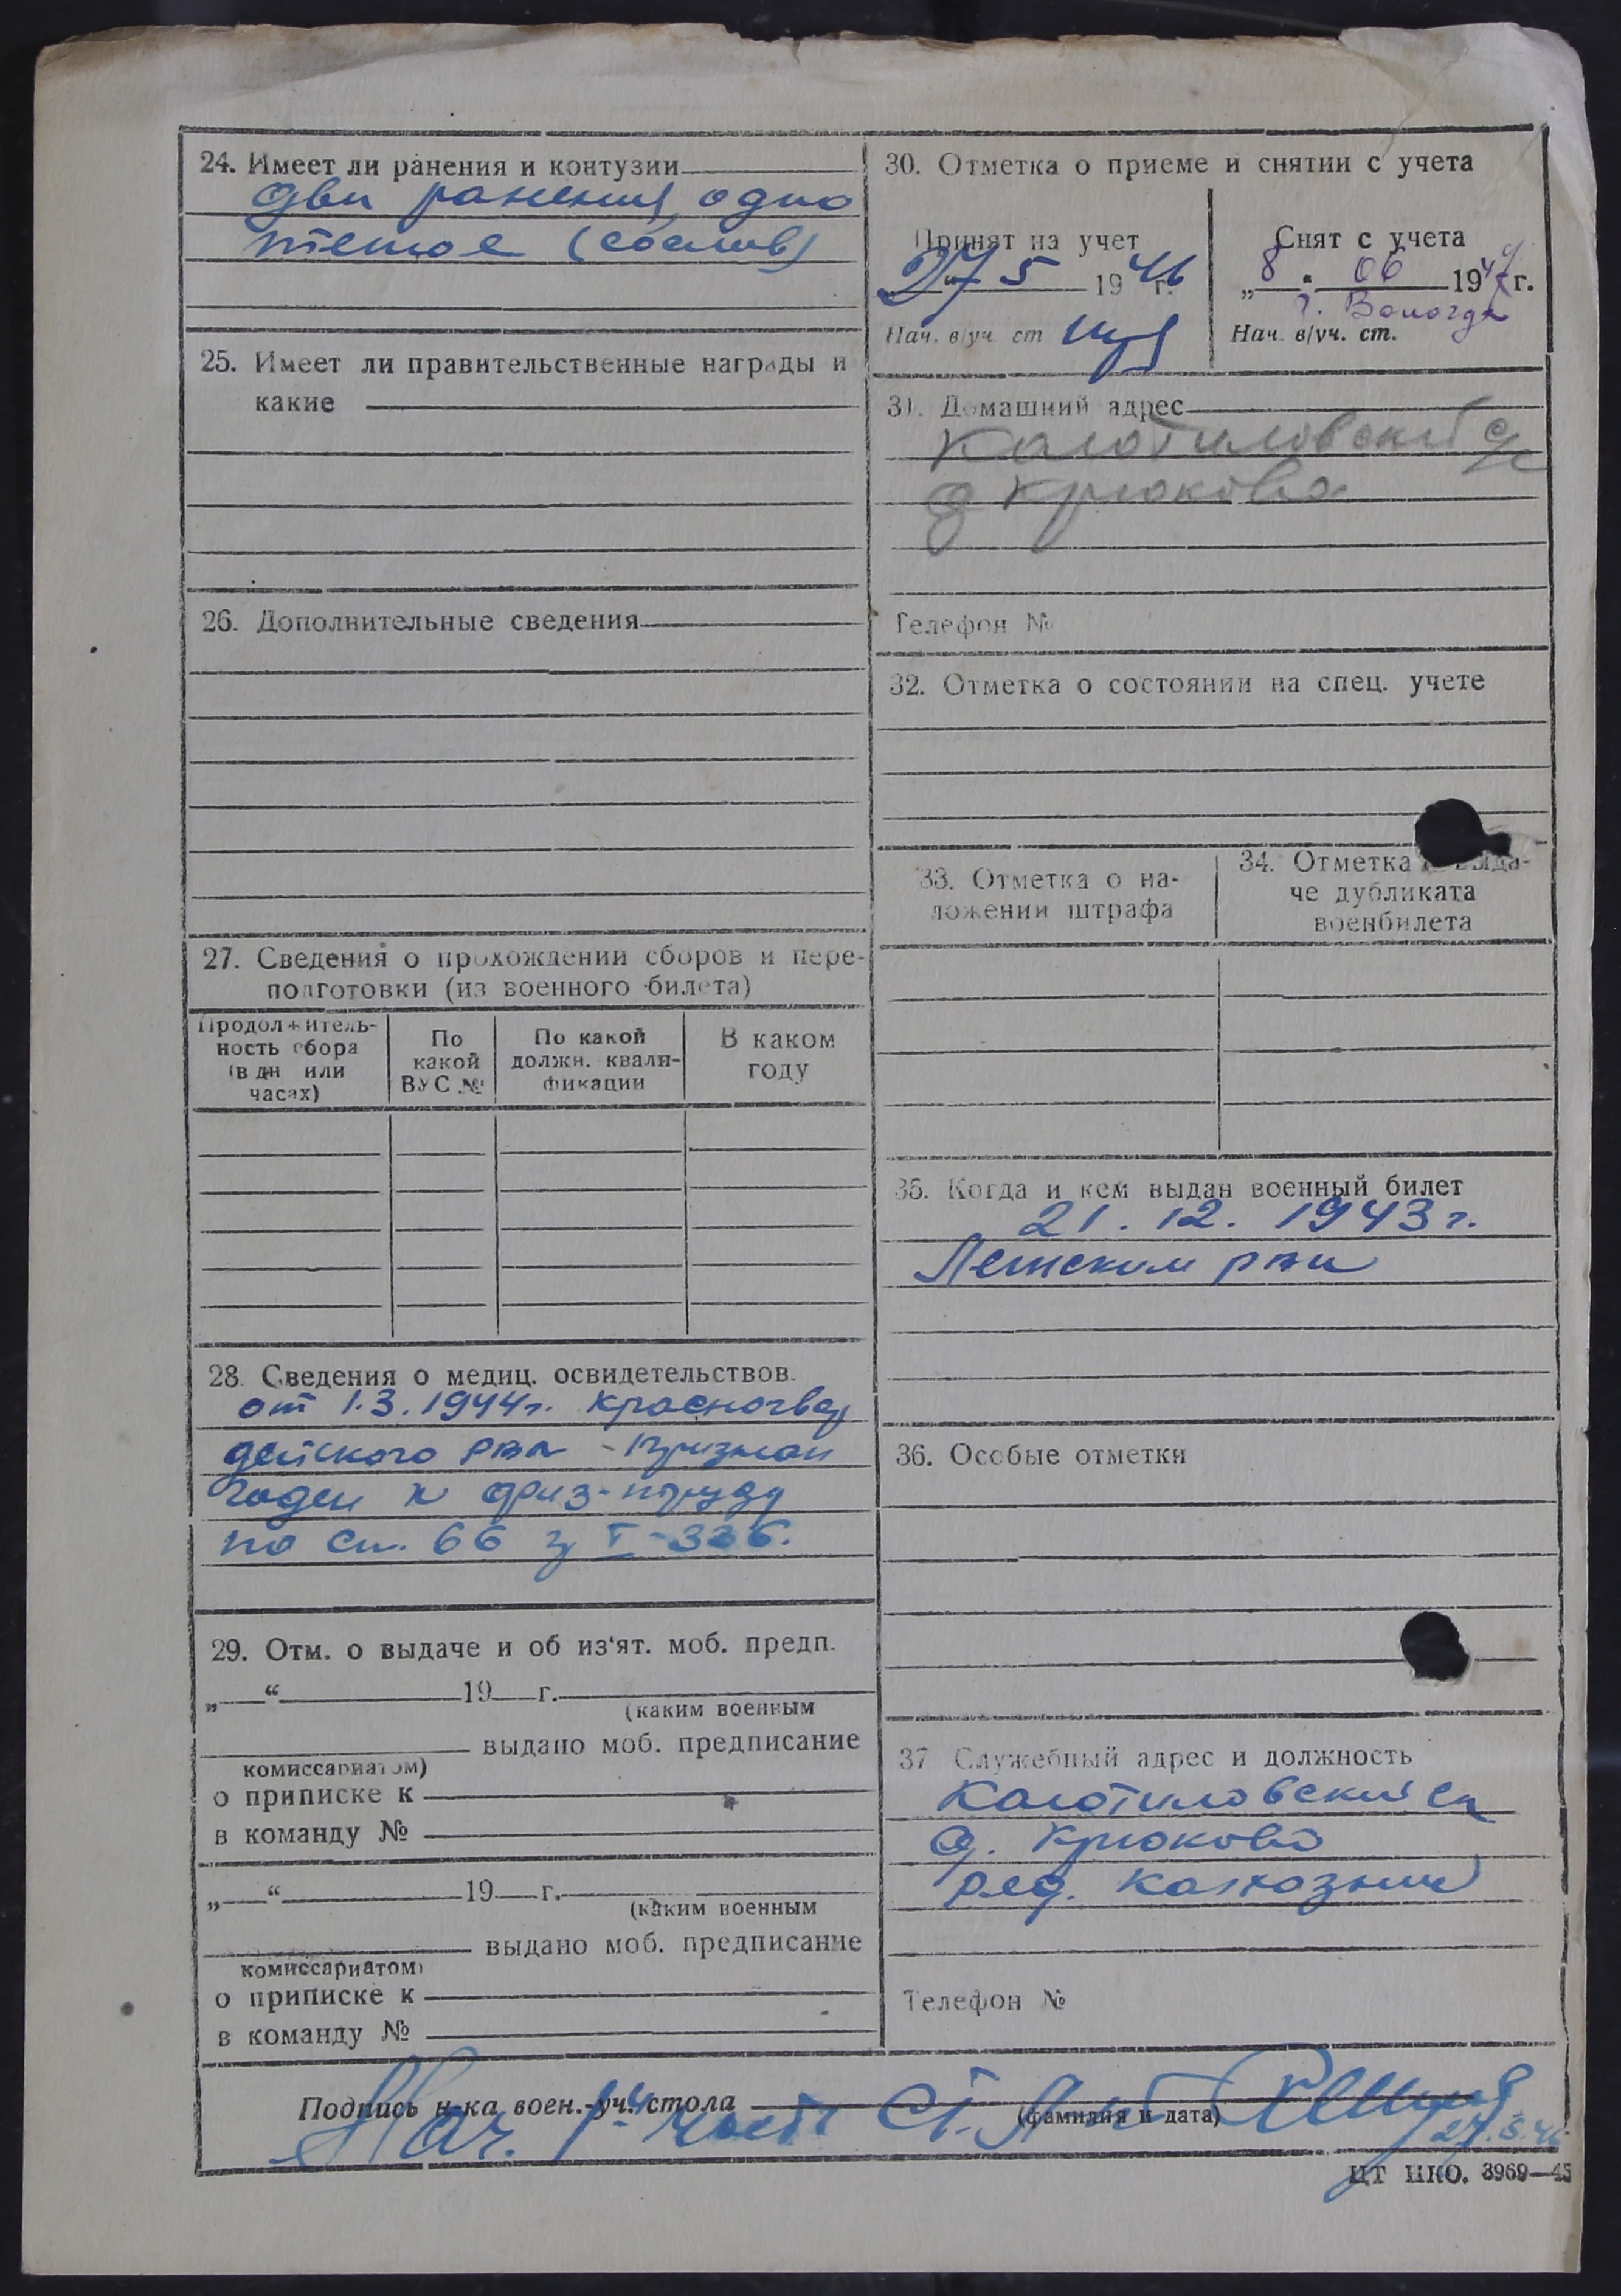 24. Имеет ли ранения и контузии
два ранения, одно
25. Имеет ли правительственные награды и
какие
26. Дополнительные сведения
27. Сведения о прохождении сборов и пере-
подготовки (из военного билета)
Продолжитель-
ность сбора
(в дн или
часах)
По
какой
ВУС №
По какой
должн. квали-
фикации
В каком
году
28. Сведения о медиц. освидетельствов.
от 1.3.1944г. Красногвар
дейского рвк - признан
годен к физ-труду
по ст. 66
29. Отм. о выдаче и об из'ят. моб. предп.
„ “ 19 г.
(каким военным
выдано моб. предписание
комиссариатом)
о приписке к
в команду №
„ “ 19 г.
(каким военным
выдано моб. предписание
комиссариатом)
о приписке к
в команду №
30. Отметка о приеме и снятии с учета
Принят на учет
27 5 1946 г.
Нач. в/уч ст
Снят с учета
„8 “ 06 1947 г.
г. Вологда
Нач. в/уч. ст.
31. Домашний адрес
Калотиловский с/с
д Крюково
Телефон №
32. Отметка о состоянии на спец. учете
33. Отметка о на-
ложении штрафа
34. Отметка о выда-
че дубликата
военбилета
35. Когда и кем выдан военный билет
21. 12. 1943 г.
рвк
36. Особые отметки
37 Служебный адрес и должность
Калотиловский сс
д. Крюково
ряд. колхозник
Телефон №
Подпись н-ка воен.-уч. стола
Нач. 1-ч части Ст. Л-нт
(фамилия и дата)
27.5.46
ЦТ НКО. 3969—45